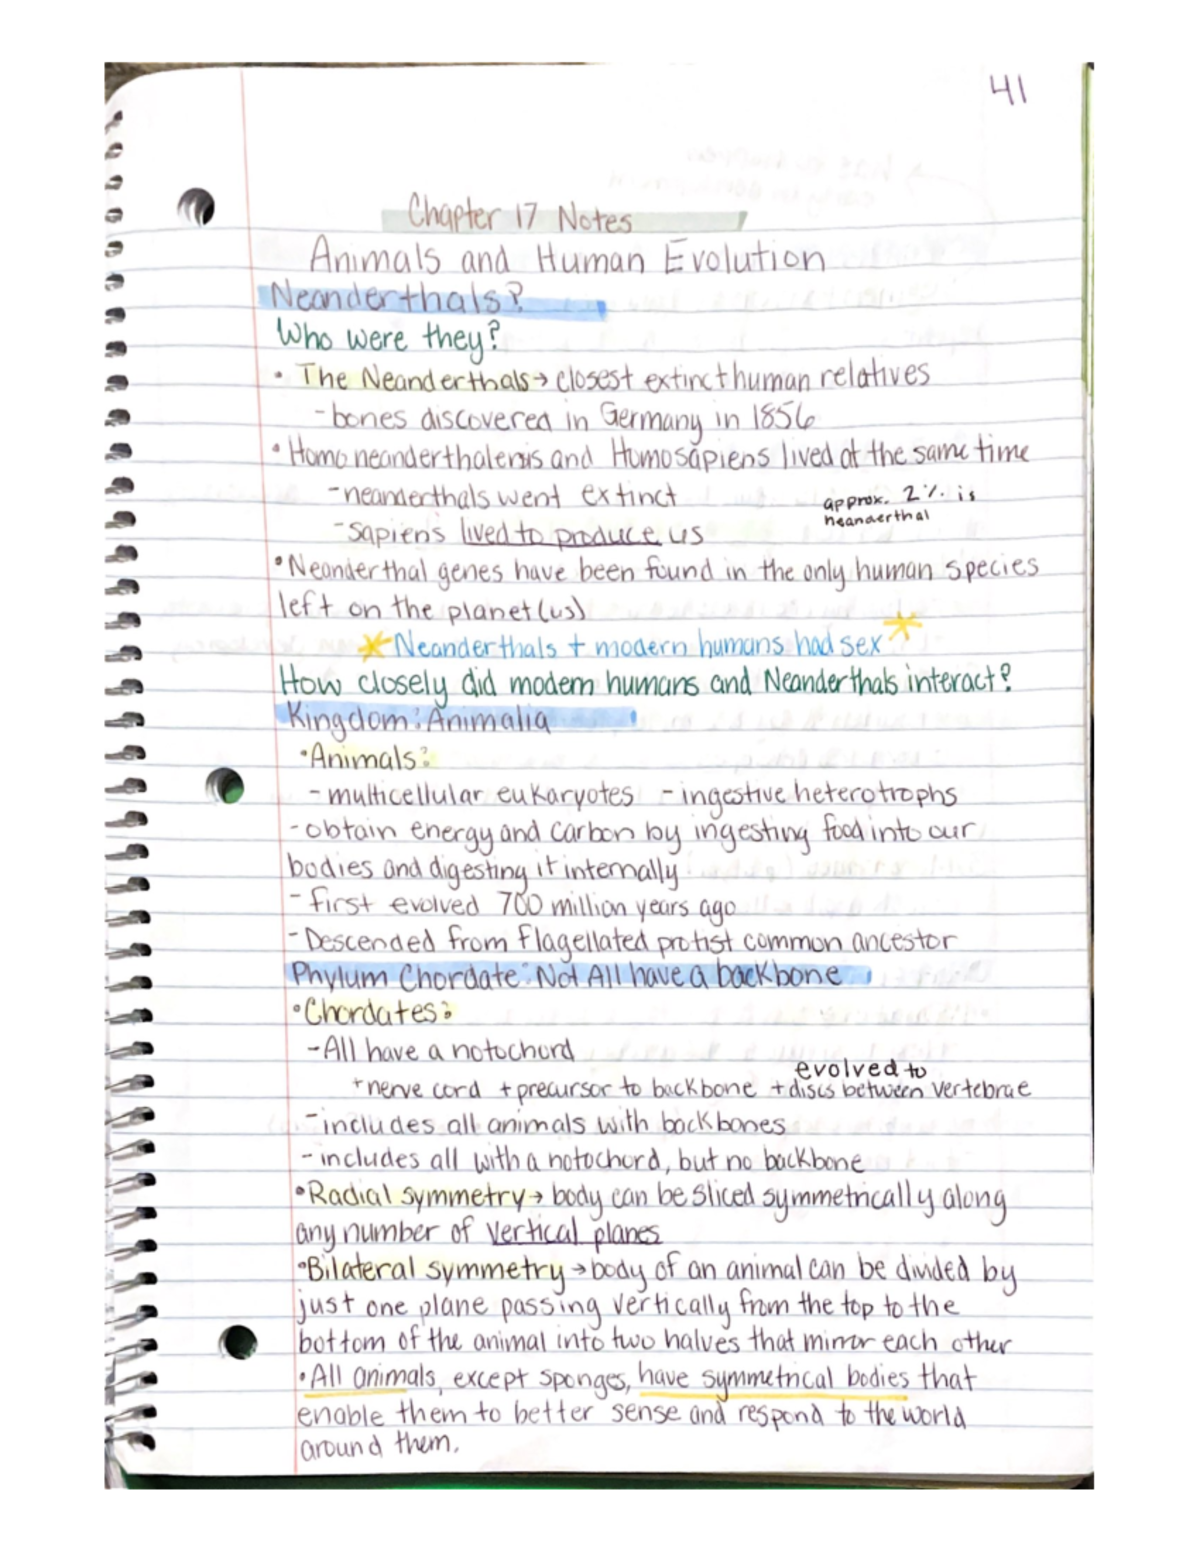 41
Chapter 17 Notes
Animals and Human Evolution
Neanderthals?
Who were they?
• The Neanderthals → closest extinct human relatives
- bones discovered in Germany in 1856
• Homo neanderthalensis and Homosapiens lived at the same time
- neanderthals went extinct
approx. 2% is
neanderthal
- sapiens lived to produce us
• Neanderthal genes have been found in the only human species
left on the planet (us)
* Neanderthals + modern humans had sex *
How closely did modern humans and Neanderthals interact?
Kingdom: Animalia
• Animals:
- multicellular eukaryotes - ingestive heterotrophs
- obtain energy and carbon by ingesting food into our
bodies and digesting it internally
- first evolved 700 million years ago
- Descended from flagellated protist common ancestor
Phylum Chordate: Not All have a backbone
• Chordates:
- All have a notochord
evolved to
+ nerve cord + precursor to backbone + discs between vertebrae
- includes all animals with backbones
- includes all with a notochord, but no backbone
• Radial symmetry → body can be sliced symmetrically along
any number of vertical planes
• Bilateral symmetry → body of an animal can be divided by
just one plane passing vertically from the top to the
bottom of the animal into two halves that mirror each other
• All animals, except sponges, have symmetrical bodies that
enable them to better sense and respond to the world
around them.